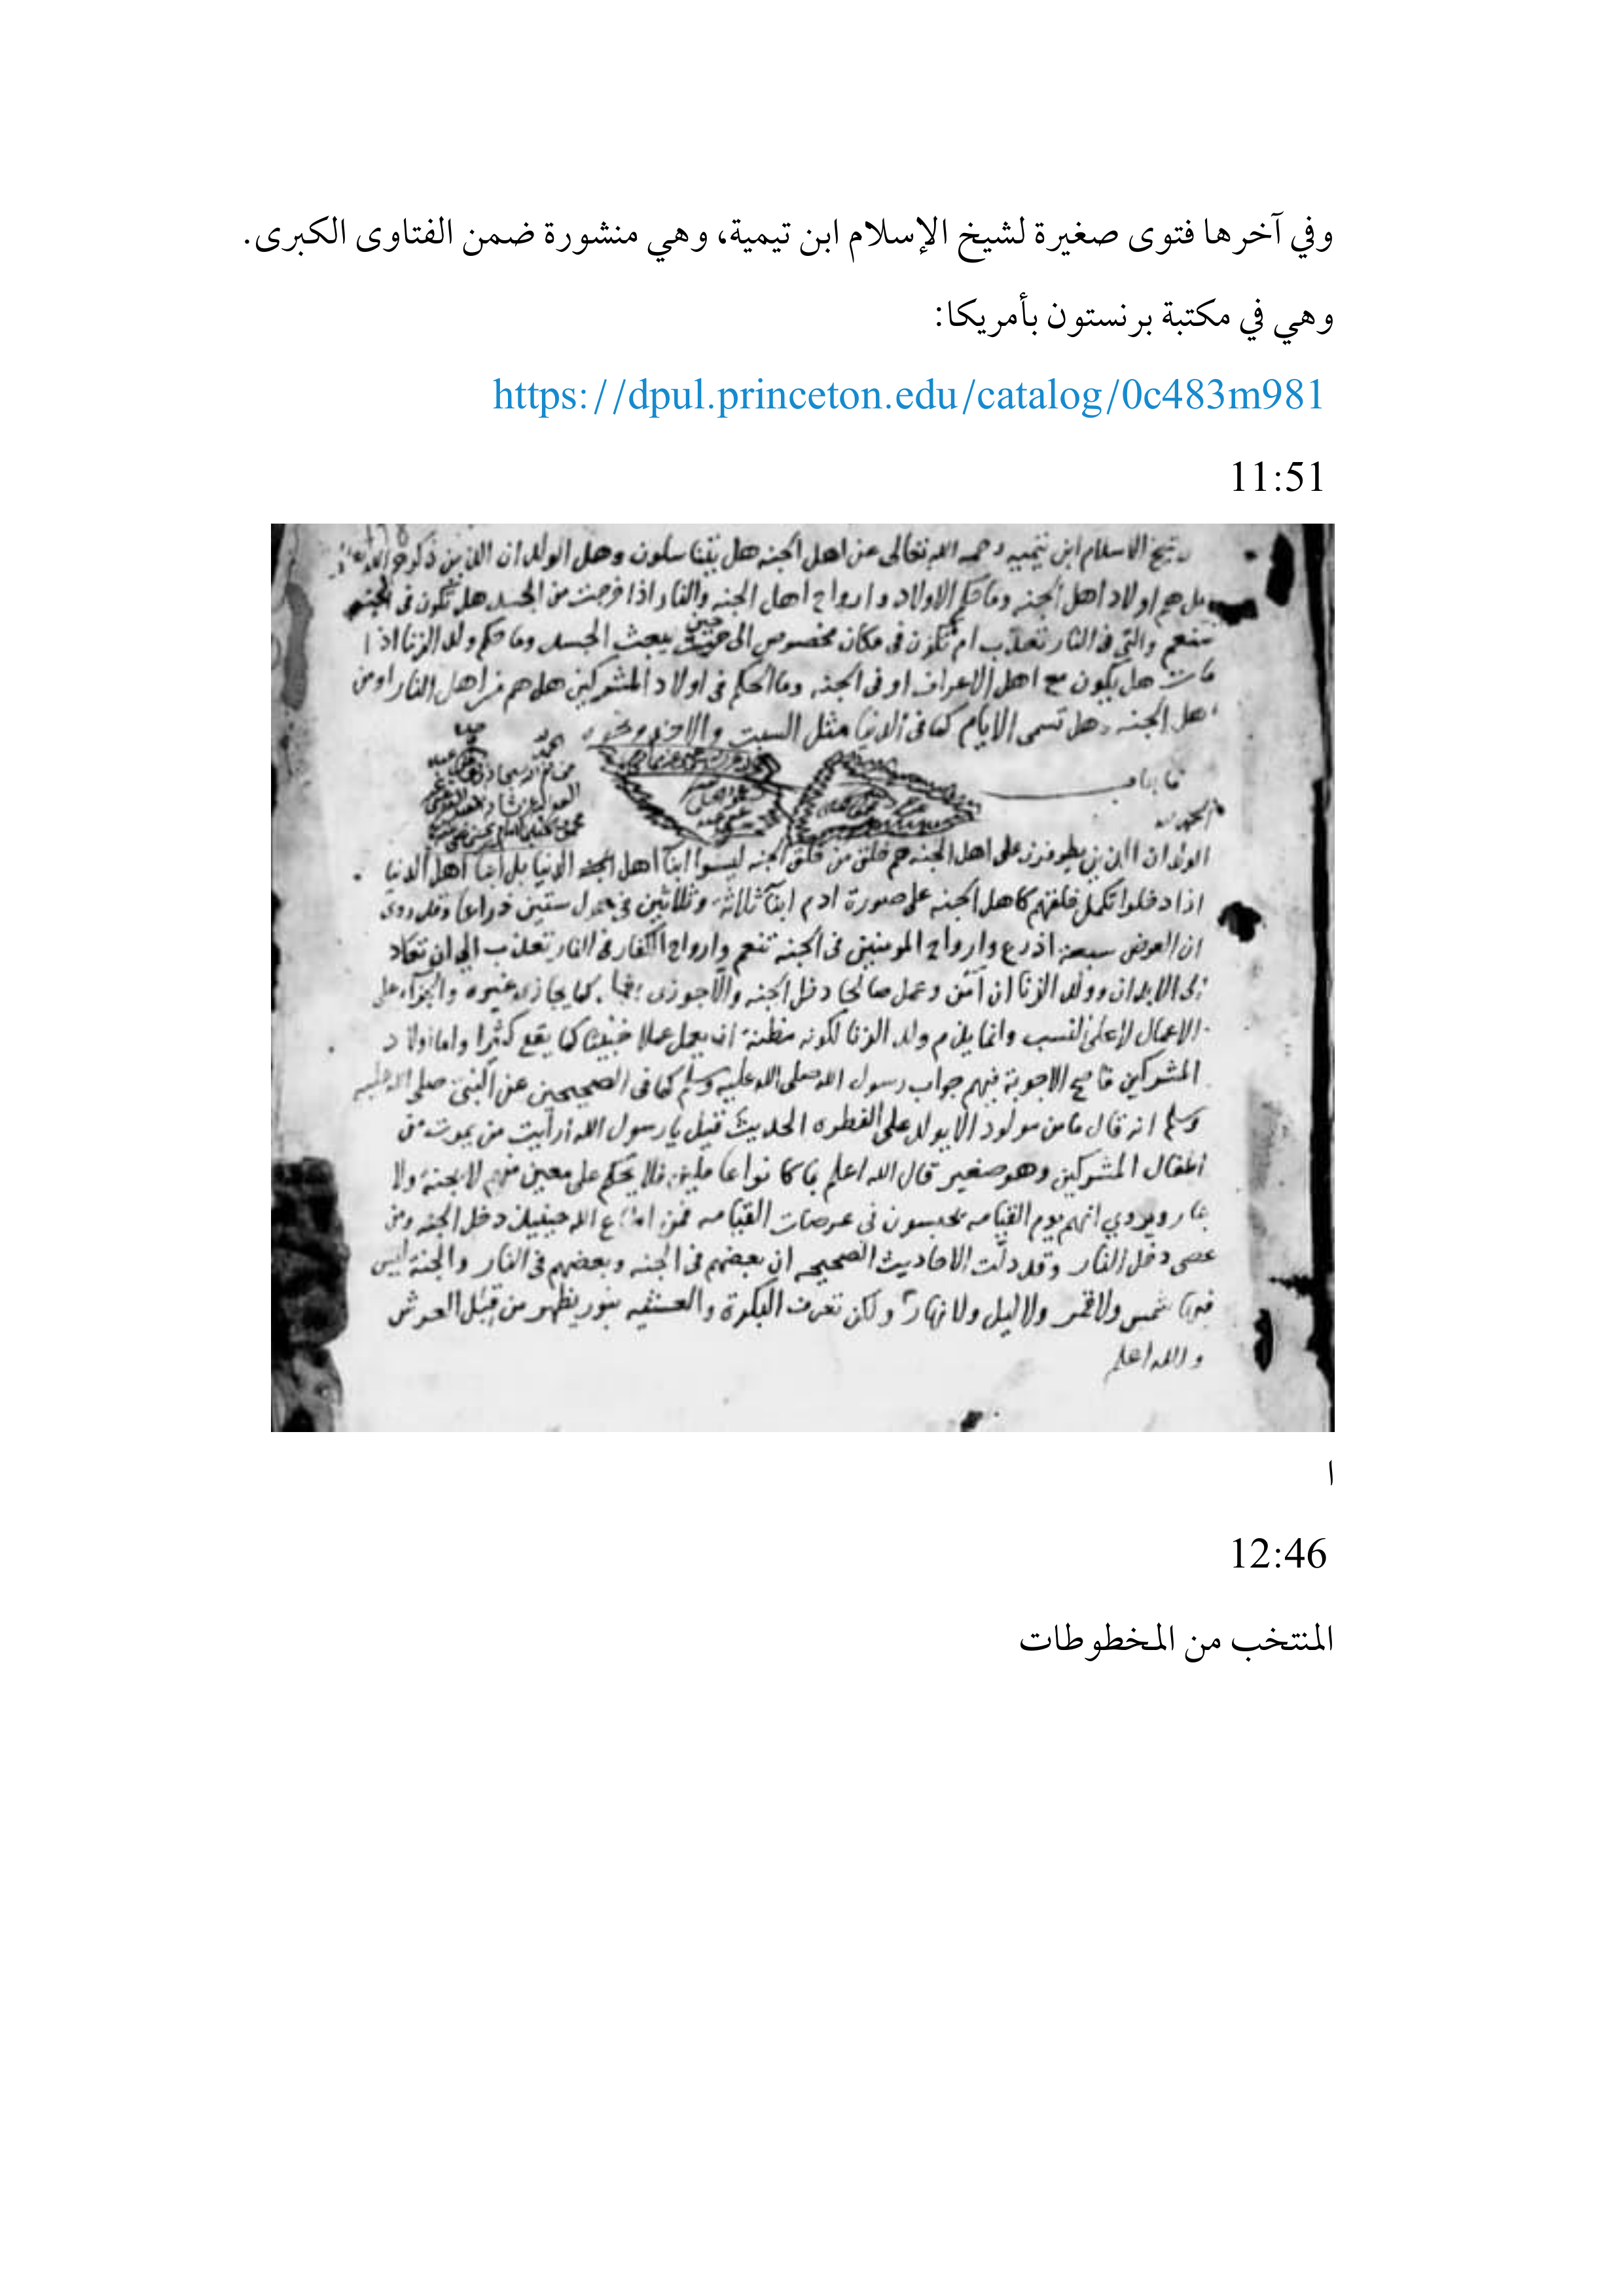 وفي آخرها فتوى صغيرة لشيخ الإسلام ابن تيمية، وهي منشورة ضمن الفتاوى الكبرى.
وهي في مكتبة برنستون بأمريكا:
https://dpul.princeton.edu/catalog/0c483m981
11:51
شيخ الاسلام ابن تيميه رحمه الله تعالى عن اهل الجنه هل يتناسلون وهل الولدان الذين ذكرهم الله
هل هم اولاد اهل الجنه وما حكم الاولاد وارواح اهل الجنه والنار اذا خرجت من الجسد هل تكون في الجنه
تنعم والتي في النار تعذب ام تكون في مكان مخصوص الى حين يبعث الجسد وما حكم ولد الزنا اذا
مات هل يكون مع اهل الاعراف او في الجنه وما الحكم في اولاد المشركين هل هم من اهل النار او من
اهل الجنه وهل تسمى الايام كما في الدنيا مثل السبت والاحد ونحوه
فاجاب
الحمد لله
الولدان الذين يطوفون على اهل الجنه هم خلق من خلق الجنه ليسوا ابنا اهل الدنيا بل ابنا اهل الدنيا
اذا دخلوا تكمل خلقهم كاهل الجنه على صورة ادم ابنآ ثلاثة وثلاثين في طول ستين ذراعا وقد روي
ان العرض سبعة اذرع وارواح المومنين في الجنه تنعم وارواح الكفار في النار تعذب الى ان تعاد
الى الابدان وولد الزنا ان آمن وعمل صالحا دخل الجنه والا جوزي بعمله كما يجازى غيره والجزآء على
الاعمال لا على النسب وانما يذم ولد الزنا لكونه مظنة ان يعمل عملا خبيثا كما يقع كثيرا واما اولاد
المشركين فاصح الاجوبة فيهم جواب رسول الله صلى الله عليه وسلم كما في الصحيحين عن النبي صلى الله عليه
وسلم انه قال ما من مولود الا يولد على الفطره الحديث قيل يا رسول الله ارأيت من يموت من
اطفال المشركين وهو صغير قال الله اعلم بما كانوا عاملين فلا يحكم على معين منهم لا بجنة ولا
نار ويروي انهم يوم القيامه يحبسون في عرصات القيامه فمن اطاع الله حينيذ دخل الجنه ومن
عصى دخل النار وقد دلت الاحاديث الصحيحه ان بعضهم في الجنه وبعضهم في النار والجنة ليس
فيها شمس ولا قمر ولا ليل ولا نهار ولكن تعرف البكرة والعشيه بنور يظهر من قبل العرش
والله اعلم
ا
12:46
المنتخب من المخطوطات